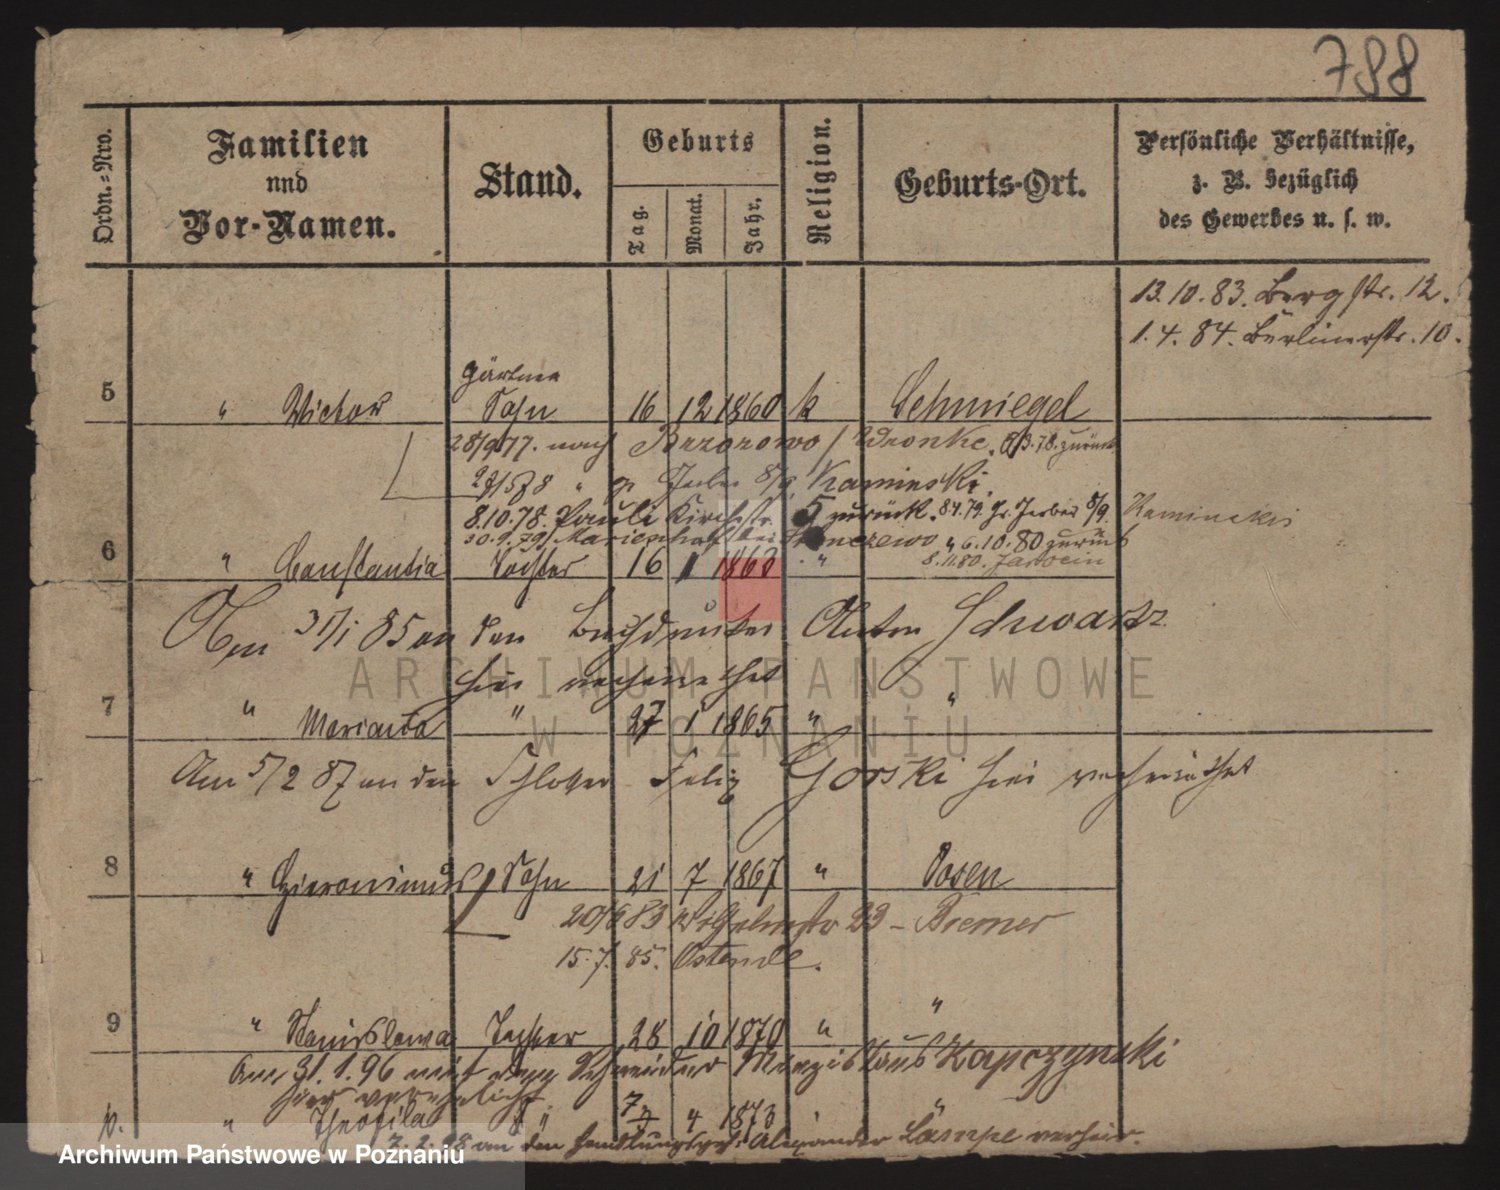 788
Ordn.=Nro.
Familien
und
Vor-Namen.
Stand.
Geburts
Tag.
Monat.
Jahr.
Religion.
Geburts-Ort.
Persönliche Verhältnisse,
z. B. bezüglich
des Gewerbes u. s. w.
13.10.83. Bergstr. 12.
1.4.84. Berlinerstr. 10.
Gärtner
5 " Victor Sohn 16 12 1860 k Schmiegel
28/9 77. nach Brzozowo / Wronke. 78. zurück
" Kaminski.
8.10.78. Pauli Kirchstr. 5 zurück. 8.4.79. Gr. Gerber 8/9 Kaminski
30.9.79 Marienhof bei " 6.10.80 zurück
8.11.80. Jarocin
6 " Constantia Tochter 16 1 1863 "
Am 31/1 85 an den Buchdrucker Anton Schwartz
hier verheirathet
7 " Marianna " 27 1 1865 " "
Am 5/2 87 an den Schlosser Felix Gorski hier verheirathet
8 " Hieronimus Sohn 21 7 1867 " Posen
20/6 83 Wilhelmstr 23 - Bremer
15.7.85. Ostende.
9 " Stanislawa Tochter 28 10 1870 " "
Am 31.1.96 mit dem Schneider Kapczynski
hier verehelicht.
p. " Theofila " 7 4 1873 " "
7.2.98 an den Handlungsgeh. Alexander Lampe verheir.
ARCHIWUM PAŃSTWOWE
W POZNANIU
Archiwum Państwowe w Poznaniu